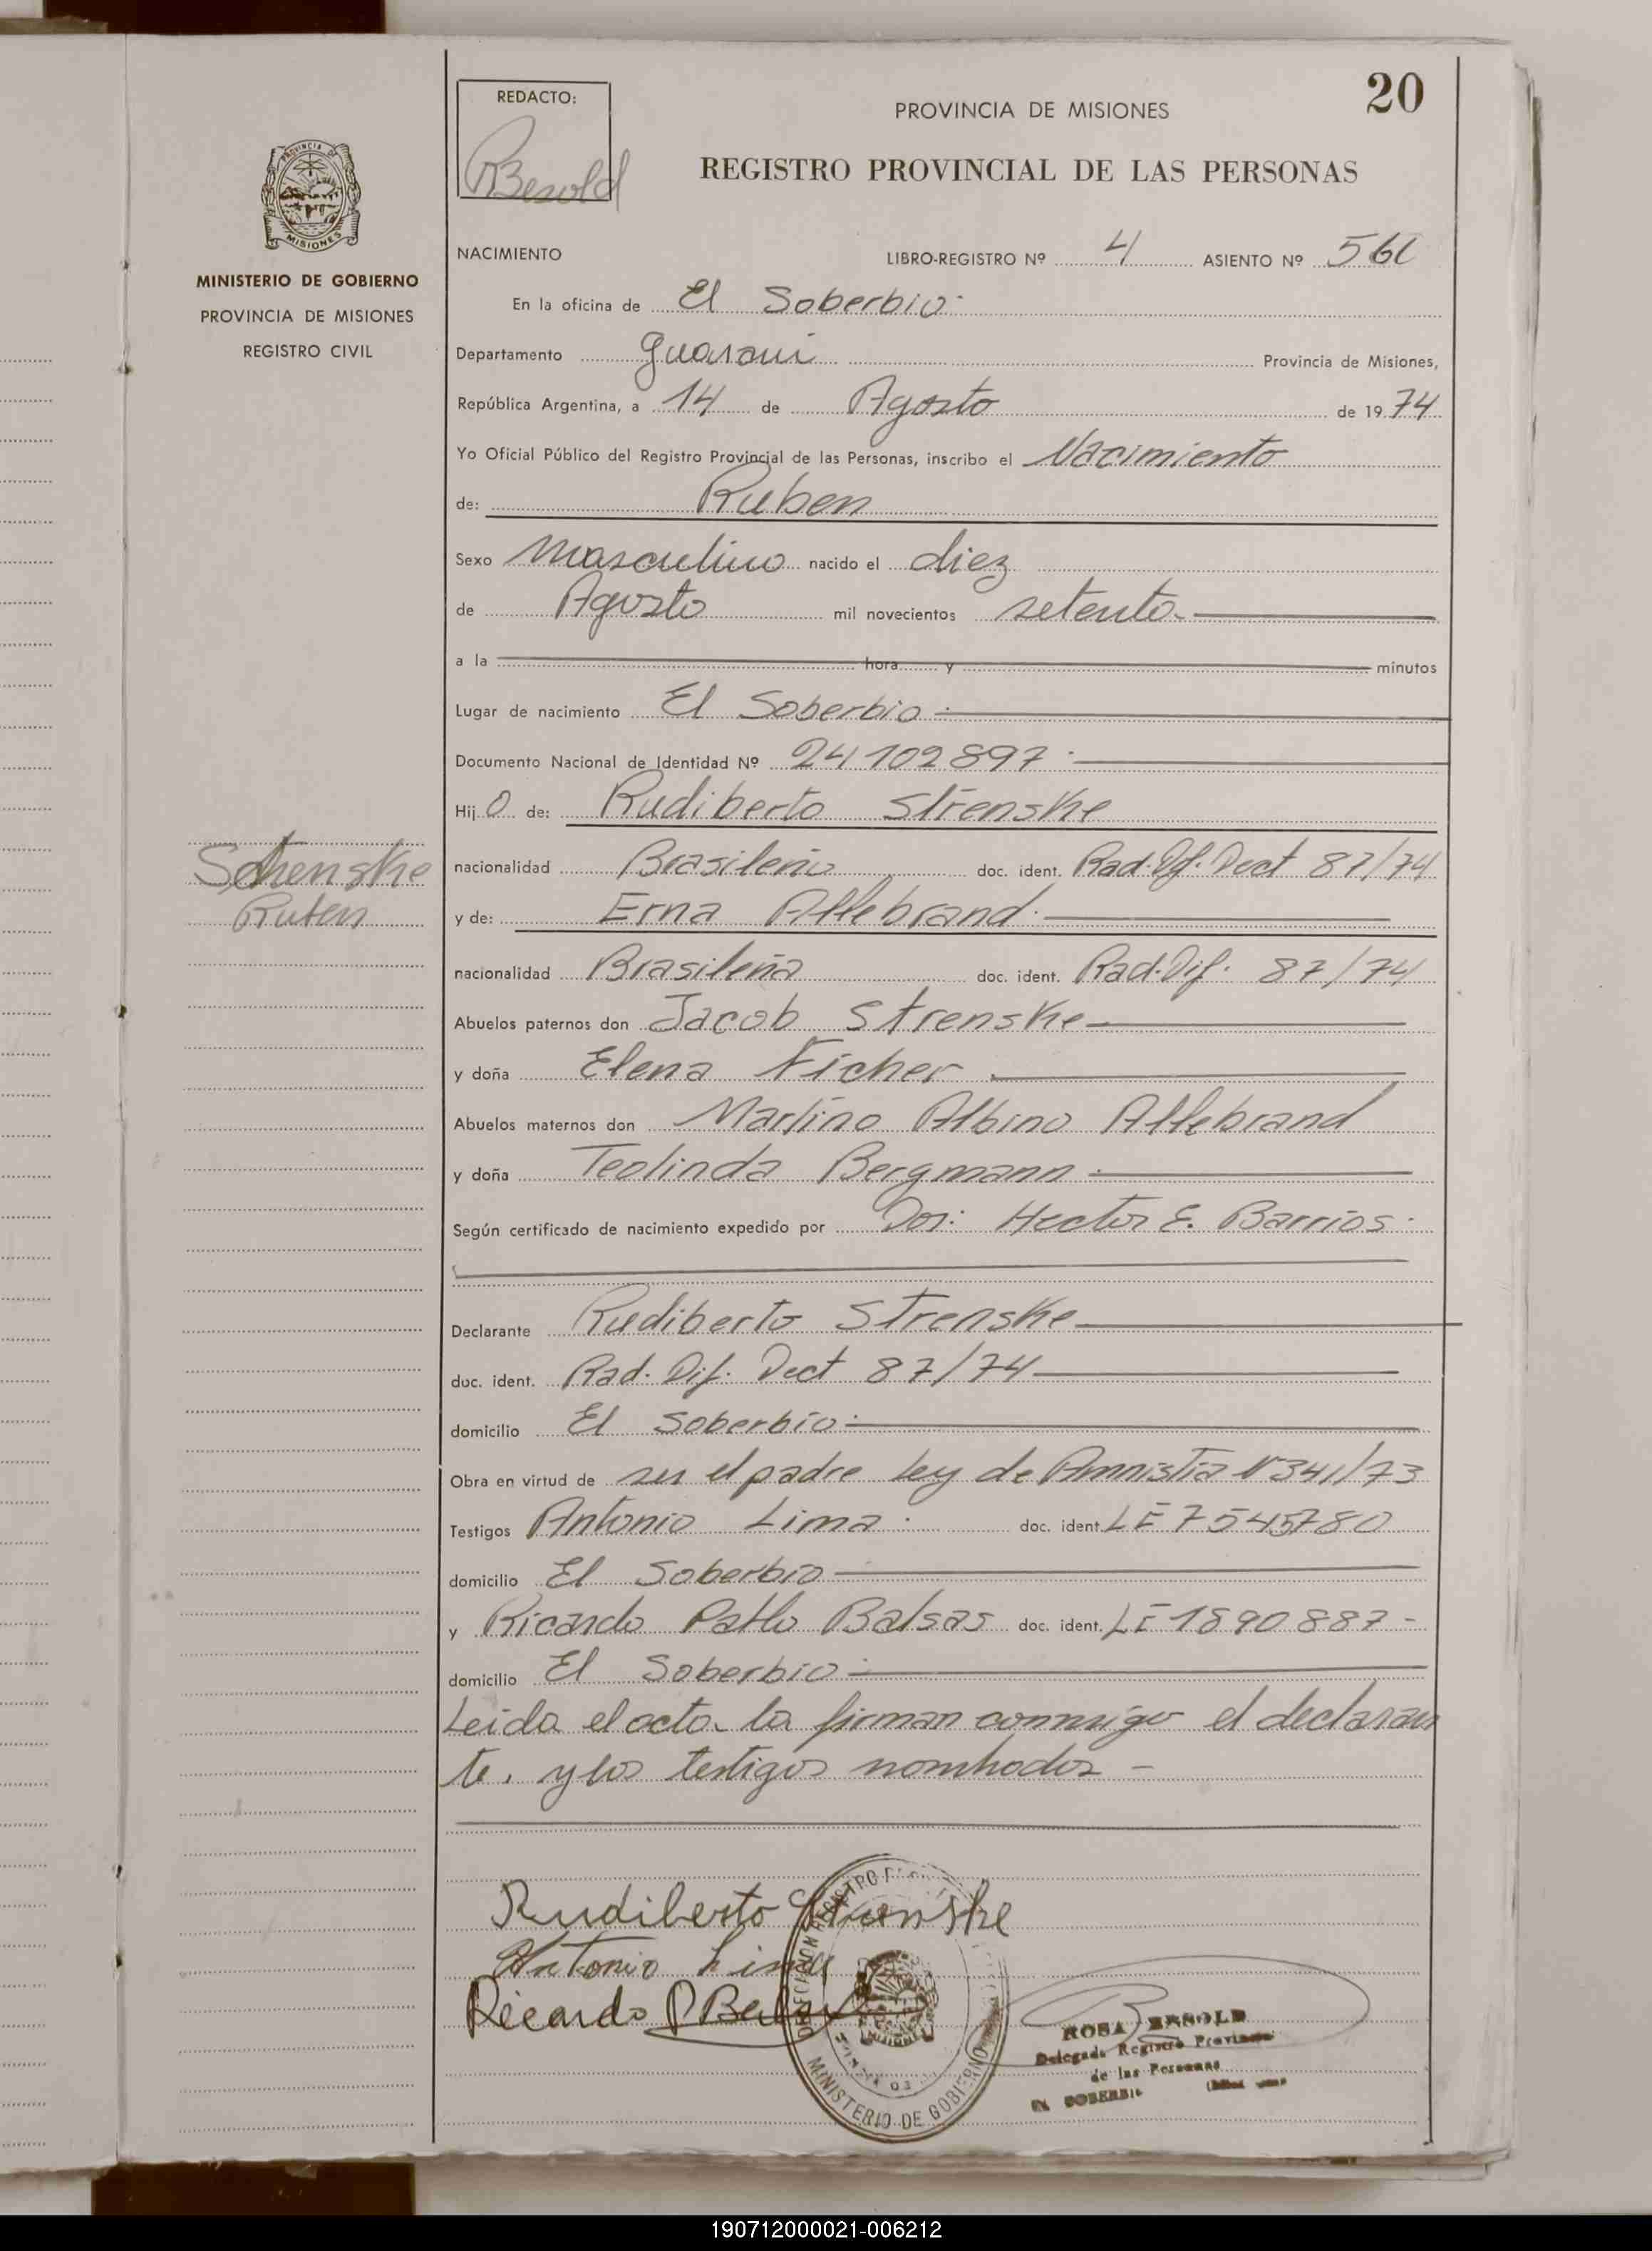 20
REDACTO:
RBesold
PROVINCIA DE MISIONES
REGISTRO PROVINCIAL DE LAS PERSONAS
PROVINCIA DE
MISIONES
MINISTERIO DE GOBIERNO
PROVINCIA DE MISIONES
REGISTRO CIVIL
NACIMIENTO LIBRO-REGISTRO Nº 4 ASIENTO Nº
En la oficina de El Soberbio
Departamento Guarani Provincia de Misiones,
República Argentina, a 14 de Agosto de 1974
Yo Oficial Público del Registro Provincial de las Personas, inscribo el Nacimiento
de: Ruben
Sexo Masculino nacido el diez
de Agosto mil novecientos setenta
a la hora y minutos
Lugar de nacimiento El Soberbio
Documento Nacional de Identidad Nº 24102897
Hijo de: Rudiberto Strenske
Ruben
nacionalidad Brasileño doc. ident. Rad. Dif. Dect 87/74
y de: Erna Allebrand
nacionalidad Brasileña doc. ident. Rad. Dif. 87/74
Abuelos paternos don Jacob Strenske
y doña Elena Ficher
Abuelos maternos don Martino Albino Allebrand
y doña Teolinda Bergmann
Según certificado de nacimiento expedido por Dor: Hector E. Barrios
Declarante Rudiberto Strenske
doc. ident. Rad. Dif. Dect 87/74
domicilio El Soberbio
Obra en virtud de ser el padre Ley de Amnistia Nº 341/73
Testigos Antonio Lima doc. ident. LE 7545780
domicilio El Soberbio
y Ricardo Pablo Balsas doc. ident. LE 1890887
domicilio El Soberbio
Leida el acta la firman conmigo el declaran
te. y los testigos nombrados
Rudiberto Strenske
Antonio Lima
Ricardo P Balsas
MINISTERIO DE GOBIERNO
MISIONES
ROSA BESOLD
Delegada Registro Provincial
de las Personas
EL SOBERBIO
190712000021-006212